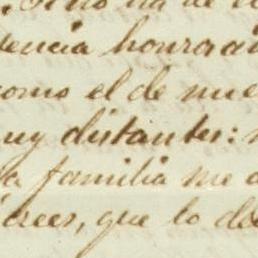 ha de
tencia honra
como el de nue
uy distantes:
familia me
crees, que lo de